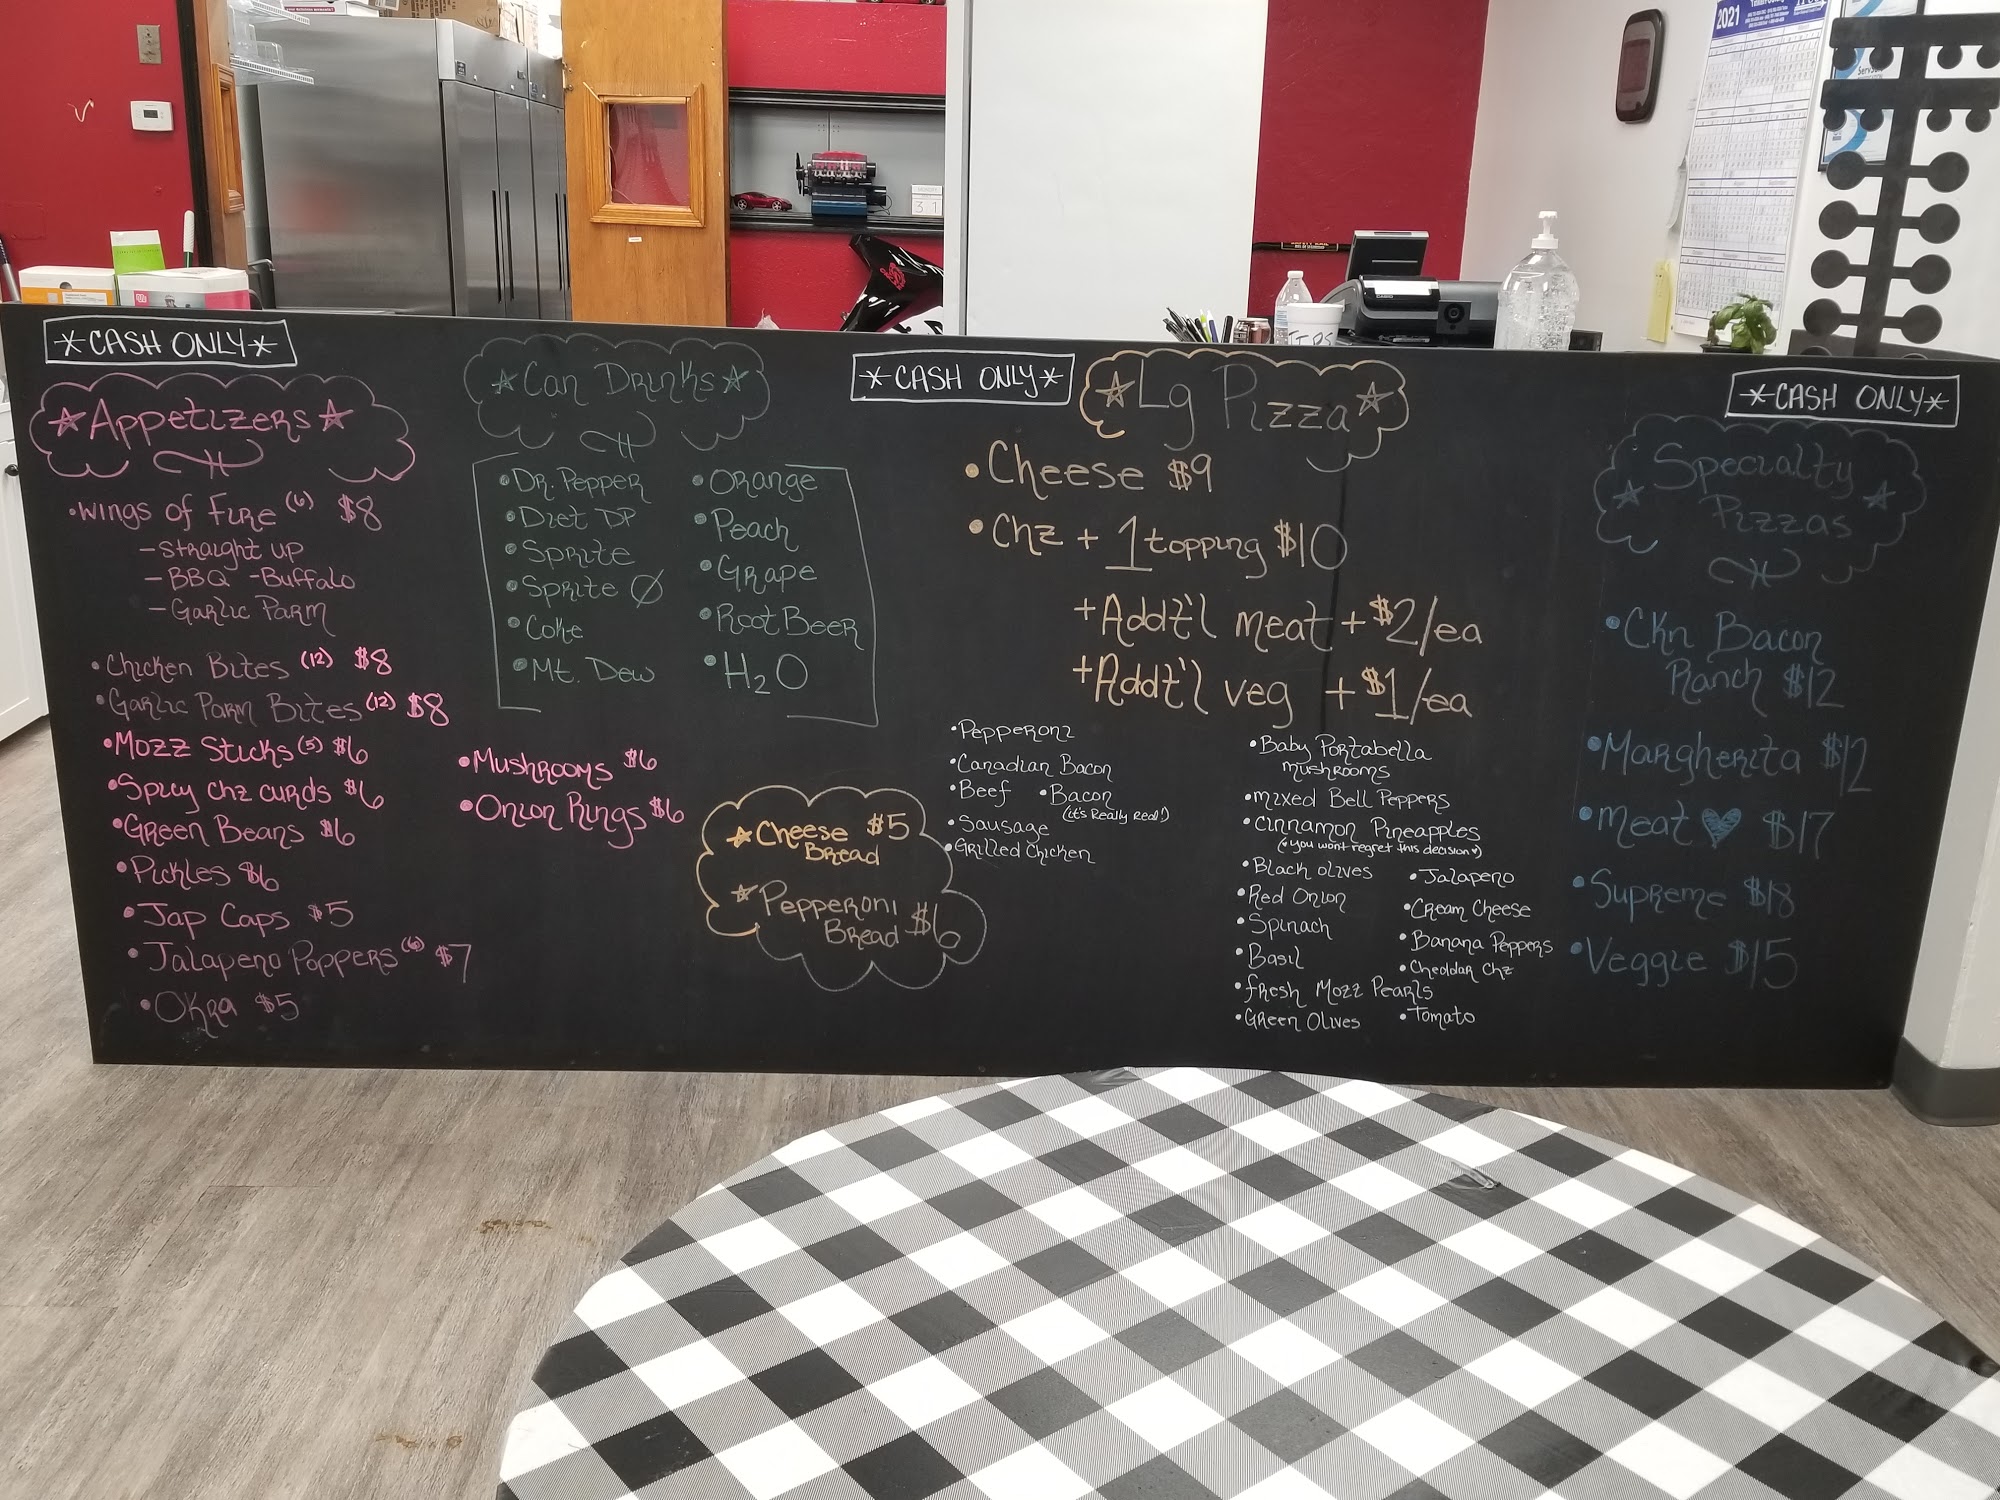 *CASH ONLY*
Appetizers
•Wings of Fire (6) $8
-Straight up
-BBQ -Buffalo
-Garlic Parm
•Chicken Bites (12) $8
•Garlic Parm Bites (12) $8
•Mozz Sticks (5) $6
•Spicy Chz curds $6
•Green Beans $6
•Pickles $6
•Jap Caps $5
•Jalapeno Poppers (6) $7
•Okra $5
•Mushrooms $6
•Onion Rings $6
Can Drinks
•Dr. Pepper
•Diet DP
•Sprite
•Sprite Ø
•Coke
•Mt. Dew
•Orange
•Peach
•Grape
•Root Beer
•H2O
Cheese $5
Bread
Pepperoni $6
Bread
*CASH ONLY*
Lg Pizza
•Cheese $9
•Chz + 1 topping $10
+Addt'l meat +$2/ea
+Addt'l veg +$1/ea
•Pepperoni
•Canadian Bacon
•Beef •Bacon
(it's Really Real!)
•Sausage
•Grilled Chicken
•Baby Portabella
mushrooms
•mixed Bell Peppers
•Cinnamon Pineapples
(♥you wont regret this decision♥)
•Black olives
•Red Onion
•Spinach
•Basil
•Fresh Mozz Pearls
•Green Olives
•Jalapeno
•Cream Cheese
•Banana Peppers
•Cheddar Chz
•Tomato
*CASH ONLY*
Specialty
Pizzas
•Ckn Bacon
Ranch $12
•Margherita $12
•Meat ♥ $17
•Supreme $18
•Veggie $15
2021
CASIO
TIPS
31